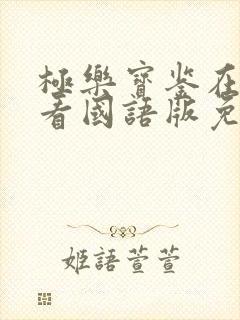 極樂寶鉴在
看國語版免
姬語萱萱